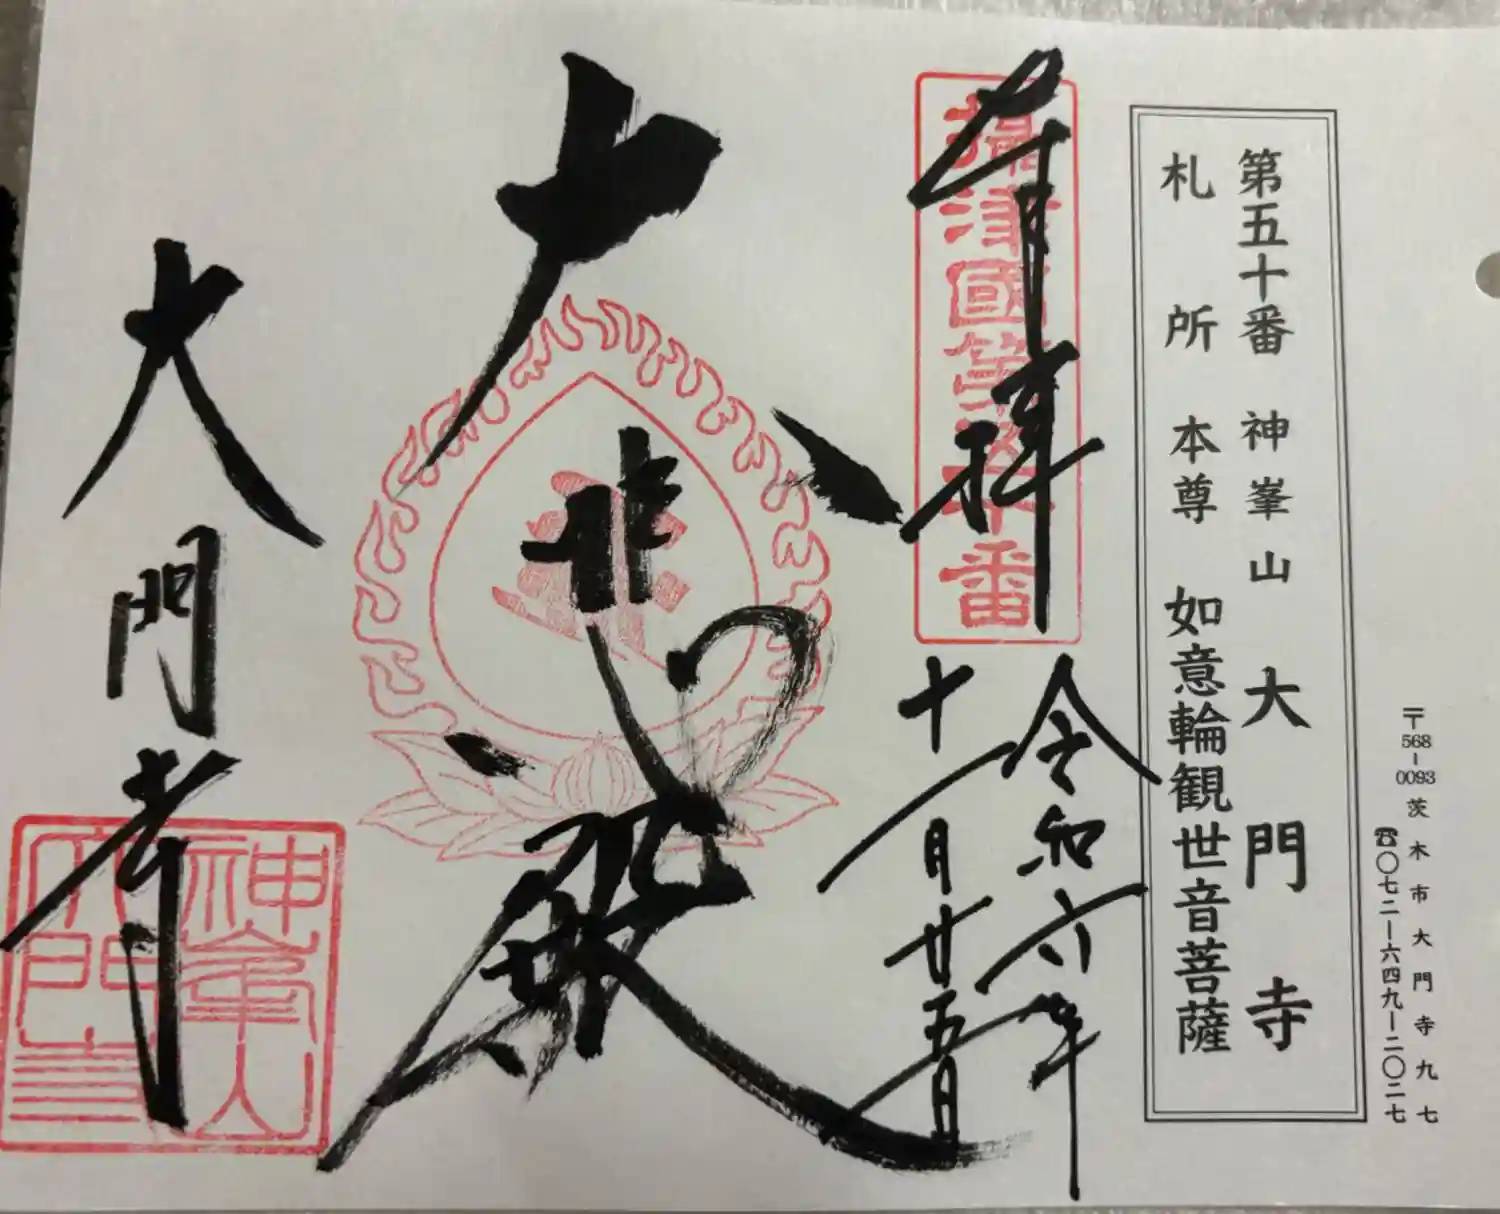 〒568-0093 茨木市大門寺九七
☎〇七二ー六四九ー二〇二七
第五十番 神峯山 大門寺
札所本尊 如意輪観世音菩薩
奉拝
攝津國第五十番
令和六年
十一月廿五日
大悲殿
大門寺
神峯山
大門寺